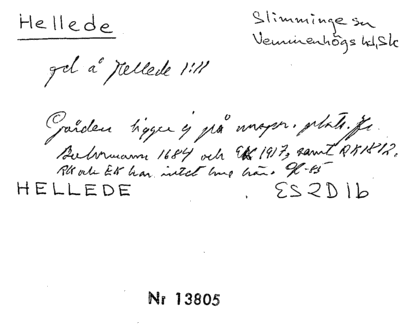 Hellede
Slimminge sn
Vemmenhögs hd, Sk
gd å Hellede 1:11
Gården ligger ej på urspr. plats. Jfr
Buhrmann 1684 och EK 1917, samt RK 1812.
RK och EK har intet namn här.
HELLEDE
ES 2 D 1 b
Nr 13805